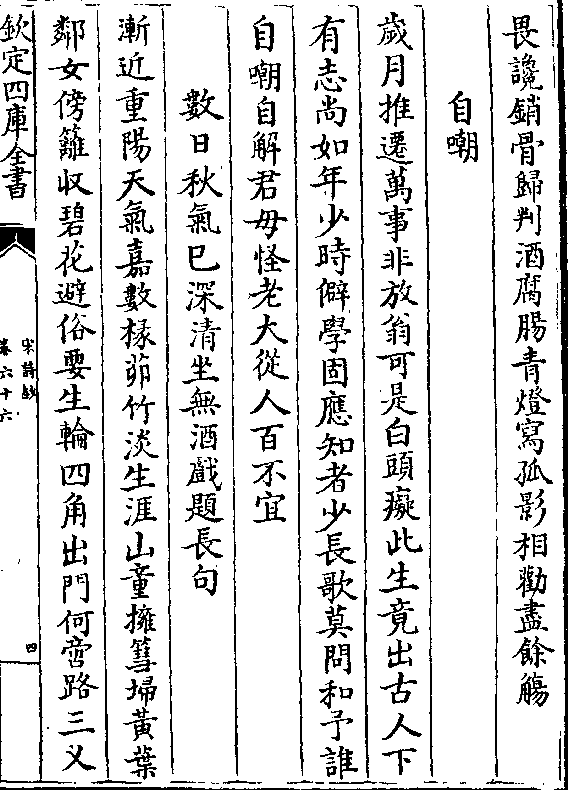 畏讒銷骨歸判酒腐腸青燈寫孤影相勸盡餘觴
自嘲
歲月推遷萬事非放翁可是白頭癡此生竟出古人下
有志尚如年少時僻學固應知者少長歌莫問和予誰
自嘲自解君毋怪老大從人百不宜
數日秋氣已深清坐無酒戲題長句
漸近重陽天氣嘉數椽茆竹淡生涯山童擁篲埽黃葉
鄰女傍籬收碧花避俗要生輪四角出門何啻路三乂
欽定四庫全書
宋詩鈔
卷六十六
四